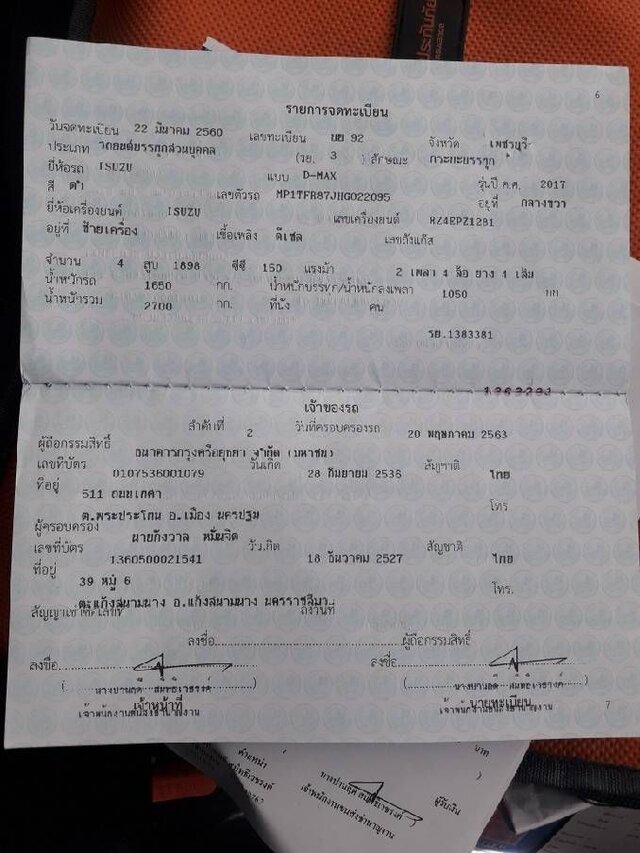 ประกันภัย
6
รายการจดทะเบียน
วันจดทะเบียน 22 มีนาคม 2560 เลขทะเบียน บย 92 จังหวัด เพชรบุรี
ประเภท รถยนต์บรรทุกส่วนบุคคล (รย. 3 ) ลักษณะ กระบะบรรทุก
ยี่ห้อรถ ISUZU แบบ D-MAX รุ่นปี ค.ศ. 2017
สี ดำ เลขตัวรถ MP1TFR87JHG022095 อยู่ที่ กลางขวา
ยี่ห้อเครื่องยนต์ ISUZU เลขเครื่องยนต์ RZ4EPZ1281
อยู่ที่ ซ้ายเครื่อง เชื้อเพลิง ดีเซล เลขถังแก๊ส
จำนวน 4 สูบ 1898 ซีซี 150 แรงม้า 2 เพลา 4 ล้อ ยาง 4 เส้น
น้ำหนักรถ 1650 กก. น้ำหนักบรรทุก/น้ำหนักลงเพลา 1050 กก
น้ำหนักรวม 2700 กก. ที่นั่ง คน
รย.1383381
เจ้าของรถ
ลำดับที่ 2 วันที่ครอบครองรถ 20 พฤษภาคม 2563
ผู้ถือกรรมสิทธิ์ ธนาคารกรุงศรีอยุธยา จำกัด (มหาชน)
เลขที่บัตร 0107536001079 วันเกิด 28 กันยายน 2536 สัญชาติ ไทย
ที่อยู่ 511 ถนนเทศา โทร
ต.พระประโทน อ.เมือง นครปฐม
ผู้ครอบครอง นายกังวาล หมั่นจิต
เลขที่บัตร 1360500021541 วันเกิด 18 ธันวาคม 2527 สัญชาติ ไทย
ที่อยู่ 39 หมู่ 6 โทร.
ต.แก้งสนามนาง อ.แก้งสนามนาง นครราชสีมา
สัญญาเช่าซื้อเลขที่ ลงวันที่
ลงชื่อ ผู้ถือกรรมสิทธิ์
ลงชื่อ ลงชื่อ
เจ้าพนักงานขนส่งชำนาญงาน เจ้าพนักงานขนส่งชำนาญงาน
เจ้าหน้าที่ นายทะเบียน
7
บาท
ตำแหน่ง
ผู้รับเงิน
เจ้าพนักงานขนส่งชำนาญงาน